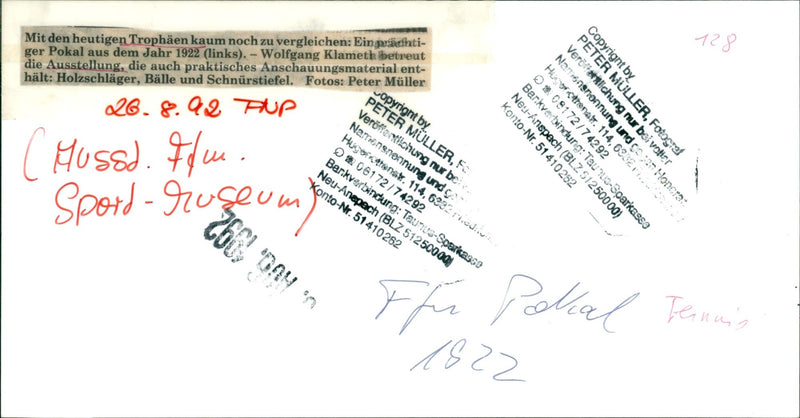 Mit den heutigen Trophäen kaum noch zu vergleichen: Ein prächti-
ger Pokal aus dem Jahr 1922 (links). – Wolfgang Klameth betreut
die Ausstellung, die auch praktisches Anschauungsmaterial ent-
hält: Holzschläger, Bälle und Schnürstiefel. Fotos: Peter Müller
26.8.92 FNP
128
Sport-Museum)
AUG. 1992
Copyright by
PETER MÜLLER,
Veröffentlichung nur bei
Namensnennung und
114,
06172/74292
Bankverbindung: Taunus-Sparkasse
Neu-Anspach (BLZ 51250000)
Konto-Nr. 51410262
Copyright by
PETER MÜLLER, Fotograf
Veröffentlichung nur bei voller
Namensnennung und Honorar
114,
06172/74292
Bankverbindung: Taunus-Sparkasse
Neu-Anspach (BLZ 51250000)
Konto-Nr. 51410262
Ffm Pokal Tennis
1922